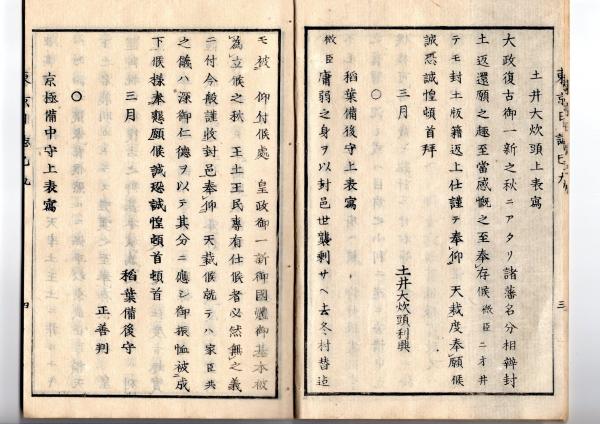 土井大炊頭上表寫
大政復古御一新之秋ニアタリ諸藩名分相辨封
土返還願之趣至當感慨之至奉存候微臣ニ於井
テモ封土版籍返上仕謹テ奉仰 天裁度奉願候
誠恐誠惶頓首拜
三月
土井大炊頭利與
〇
稻葉備後守上表寫
微臣庸弱之身ヲ以封邑世襲剰サヘ去冬村替迄
モ被 仰付候處 皇政御一新御國體御基本被
為立候之秋 王土王民專有仕候者必然無之義
ニ付今般謹收封邑奉仰 天裁候就テハ家臣共
之儀ハ深御仁德ヲ以テ其分ニ應シ御振恤被成
下候様奉懇願候誠恐誠惶頓首頓首
三月
稻葉備後守
正善判
〇
京極備中守上表寫
三
四